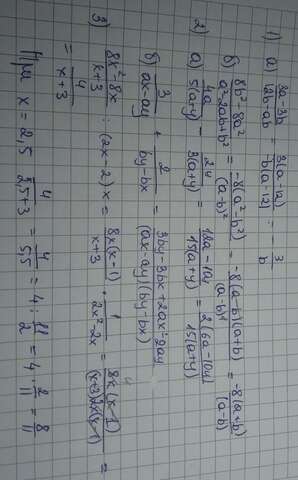 1) а) (3a-3b)/(12b-ab) = 3(a-12)/b(a-12) = - 3/b
б) (8b²-8a²)/(a²-2ab+b²) = -8(a²-b²)/(a-b)² = -8(a-b)(a+b)/(a-b)² = -8(a+b)/(a-b)
2) а) 4a/5(a-y) - 24/3(a+y) = (12a-10y)/15(a+y) = 2(6a-10y)/15(a+y)
б) 3/(ax-ay) + 2/(by-bx) = (3by-3bx+2ax-2ay)/(ax-ay)(by-bx)
3) (8x²-8x)/(x+3) : (2x-2)x = 8x(x-1)/(x+3) · 1/(2x²-2x) = 8x(x-1)/(x+3)2x(x-1) =
= 4/(x+3)
При x = 2,5 4/(2,5+3) = 4/5,5 = 4 : 11/2 = 4 · 2/11 = 8/11